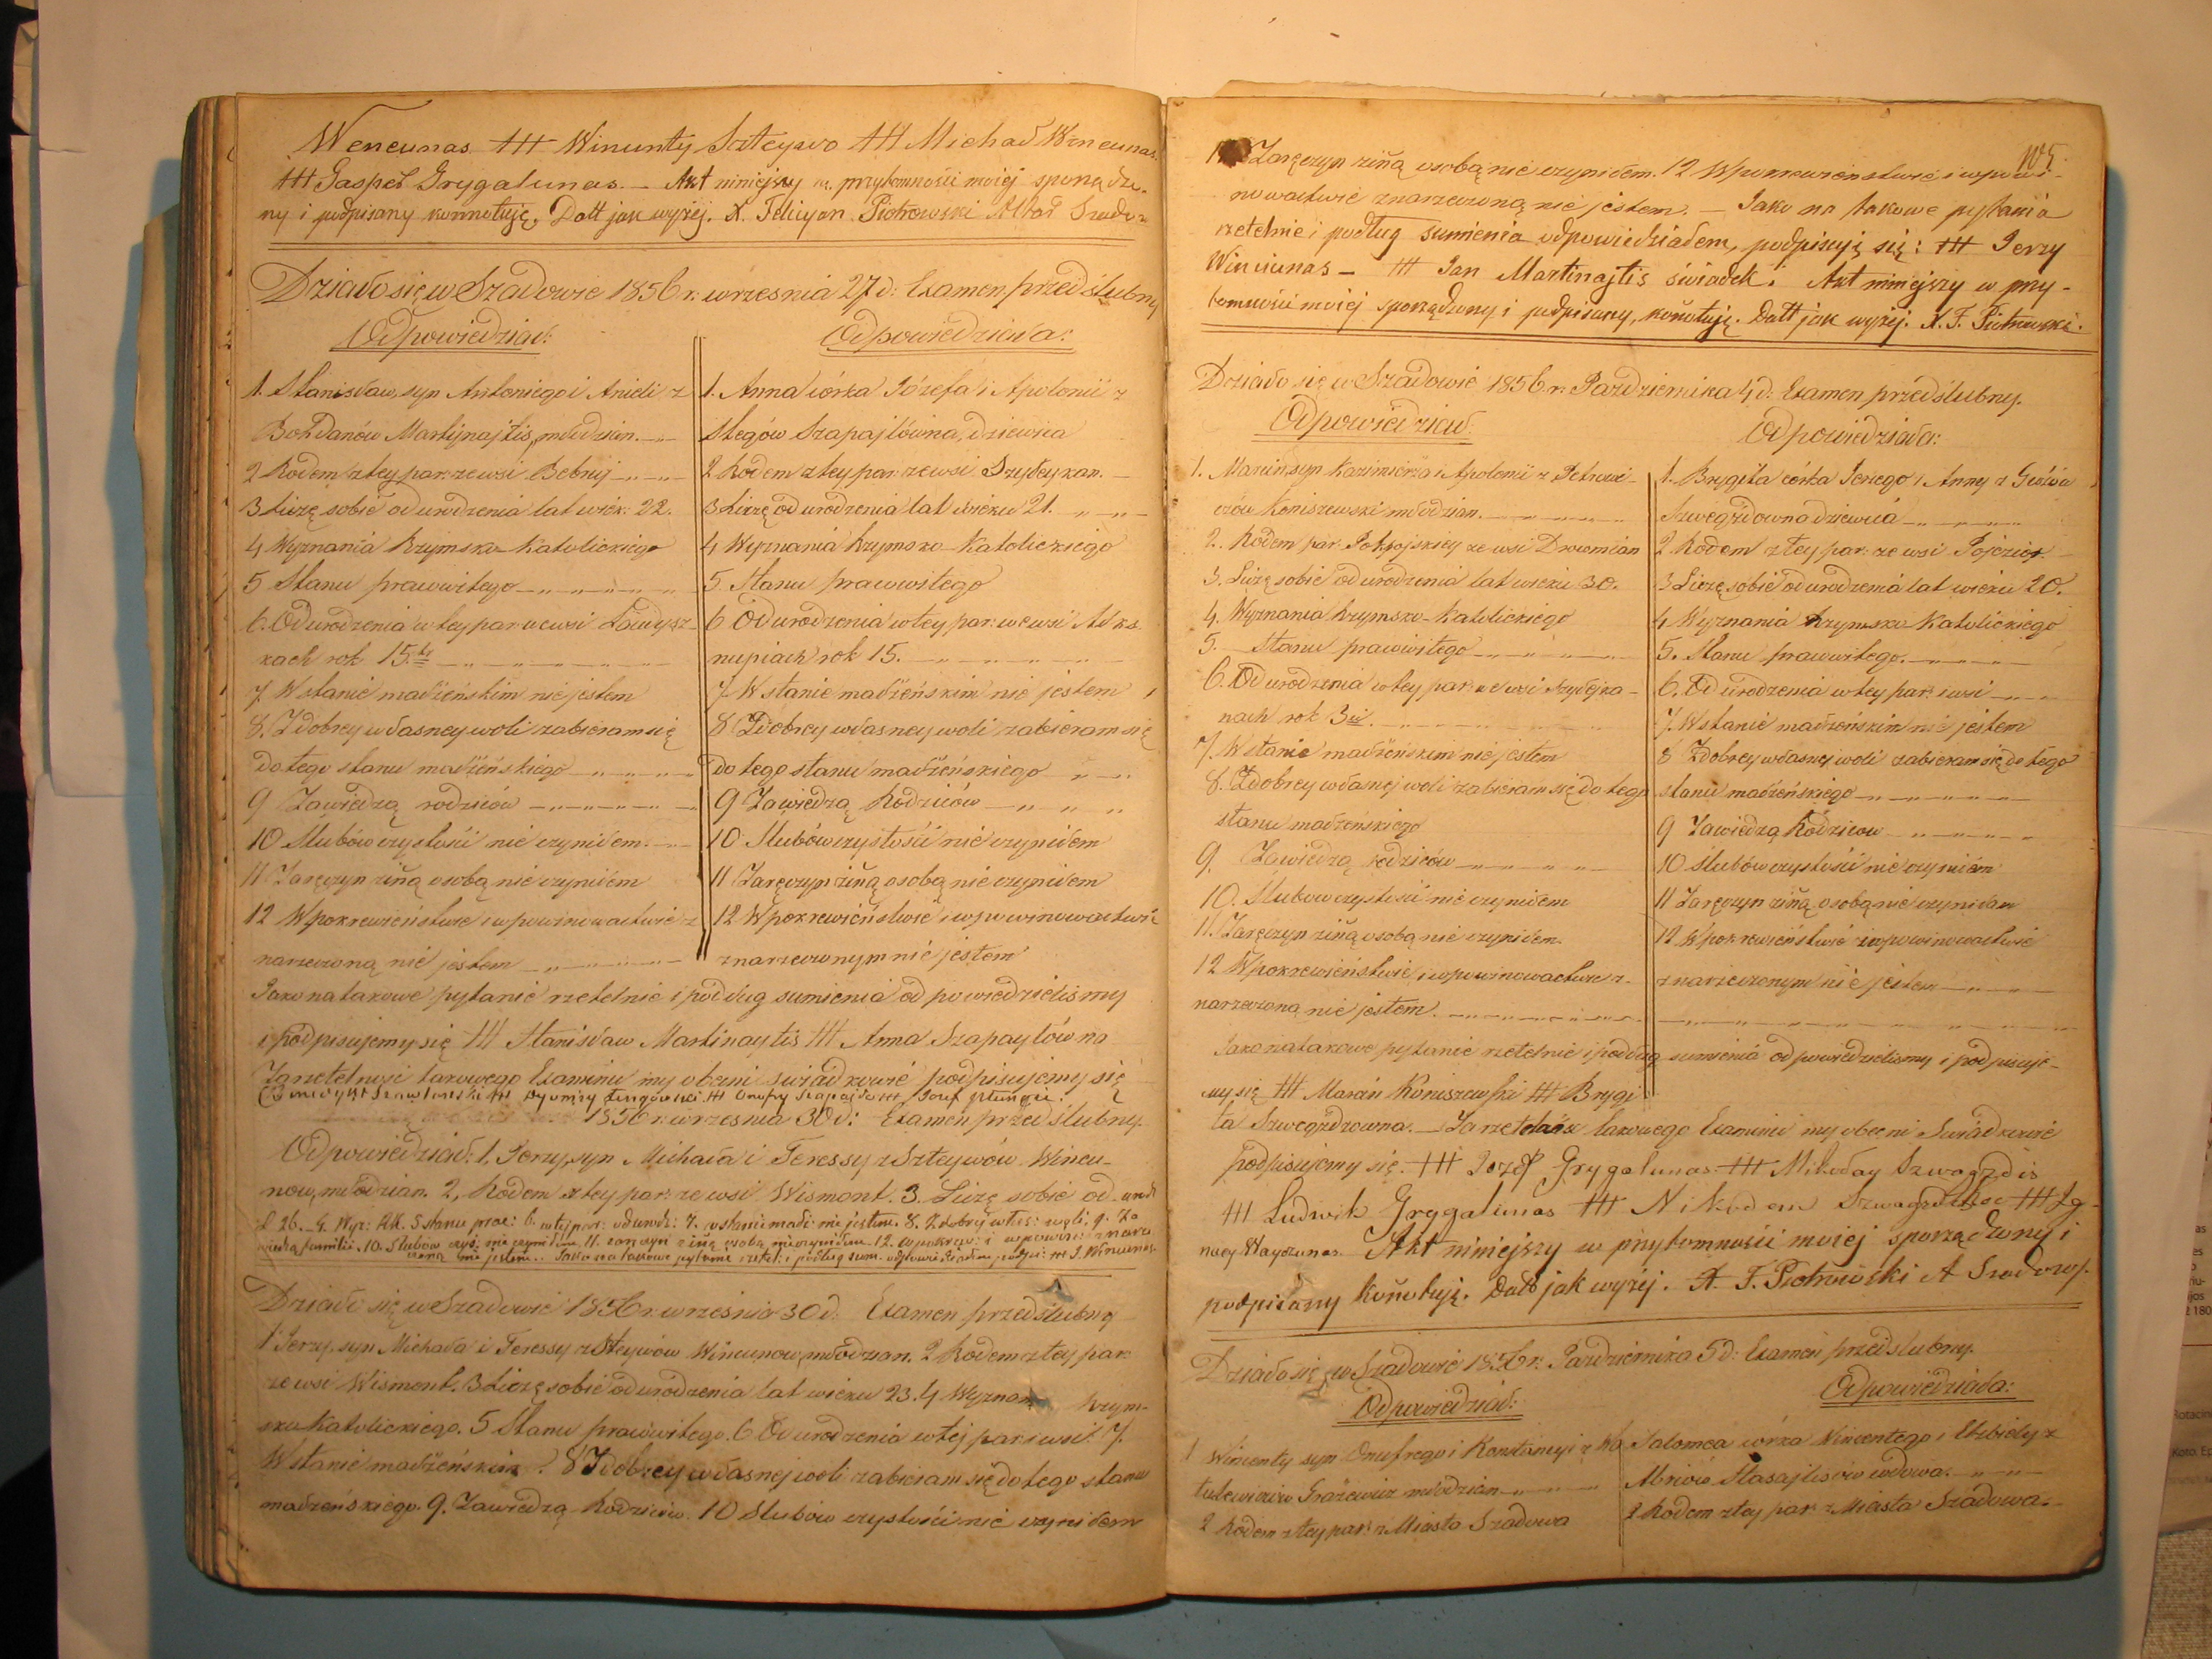 Wencunas ҂҂҂ Winunty Szteywo ҂҂҂ Michał Wencunas
҂҂҂ Gasper Grygalunas. — Akt niniejszy w przytomności mojej sporządzo-
ny i podpisany konnotuję. Datt jak wyżej. X. Felicyan Piotrowski
Działo się w Szadowie 1856 r. wrzesnia 27 d: Examen przedślubny
Odpowiedział:
1. Stanisław, syn Antoniego i Anieli z
Bohdanów Martynajtis, młodzian. —
2 Rodem z tey par: ze wsi Bebruj — „ —
3 Liczę sobie od urodzenia lat wiek: 22.
4 Wyznania Rzymsko-Katolickiego
5 Stanu prawowitego — „ — „ —
6. Od urodzenia w tey par: we wsi
kach rok 15.
7 W stanie małżeńskim nie jestem
8. Z dobrey własney woli zabieram się
do tego stanu małżeńskiego — „ —
9 Za wiedzą rodziców — „ — „ —
10 Slubów czystości nie czyniłem. —
11 Zaręczyn z iñą osobą nie czyniłem
12 W pokrewieństwie i w powinowactwie z
narzeczoną nie jestem — „ — „ —
Odpowiedziała:
1. Anna córka Józefa i Apolonii z
Stegów Szapajtówna, dziewica
2 Rodem z tey par: ze wsi Szyłeykan. —
3 Liczę od urodzenia lat wieku 21. „ —
4 Wyznania Rzymsko-Katolickiego
5 Stanu prawowitego
6 Od urodzenia w tey par: we wsi Alks
nupiach rok 15. — „ — „ —
7. W stanie małżeńskim nie jestem
8 Z dobrey własney woli zabieram się
do tego stanu małżeńskiego „ — „
9 Za wiedzą Rodziców — „ — „
10 Slubów czystości nie czyniłem
11 Zaręczyn z iñą osobą nie czyniłem
12 W pokrewieństwie i w powinowactwie
z narzeczonym nie jestem
Jako na takowe pytanie rzetelnie i podług sumienia odpowiedzielismy
i podpisujemy się ҂҂҂ Stanisław Martinaytis ҂҂҂ Anna Szapaytówna
Za rzetelność takowego Examinu my obecni swiadkowie podpisujemy się
҂҂҂ Onufry Szapajt ҂҂҂ Jozef
1856 r. wrzesnia 30 d: Examen przedślubny.
Odpowiedział: 1. Jerzy, syn Michała i Teressy z Szteywów Wincu-
now, młodzian. 2, Rodem z tey par: ze wsi Wismont. 3. Liczę sobie od urod
l 26. — 4. Wyz: RK. 5 stanu praw: 6. w tej par: od urodz: 7. w stanie małż: nie jestem. 8. Z dobrej włas: woli. 9. Za
wiedzą familii. 10. Slubów czys: nie czyniłem. 11. zaręczyn z iñą osobą nie czyniłem 12. W pokrew: i w powin: z narze
czoną nie jestem. Jako na takowe pytanie rzetel: i podług sum. odpowiedziałem podpi: ҂҂҂ J. Wincunas
Działo się w Szadowie 1856 r. września 30 d: Examen przedślubny
1 Jerzy, syn Michała i Teressy z Szteywów Wincunow, młodzian. 2 Rodem z tey par:
ze wsi Wismont. 3 Liczę sobie od urodzenia lat wieku 23. 4 Wyznan Rzym-
sko Katolickiego. 5 Stanu prawowitego. 6 Od urodzenia w tej par: i wsi. 7.
W stanie małżeńskim 8 Z dobrey własnej woli zabieram się do tego stanu
małżeńskiego. 9. Za wiedzą Rodziców 10 Slubów czystości nie czyniłem
105.
11 Zaręczyn z iñą osobą nie czyniłem. 12 W pokrewieństwie i w powi-
nowactwie z narzeczoną nie jestem. — Jako na takowe pytania
rzetelnie i podług sumienia odpowiedziałem, podpisuję się: ҂҂҂ Jerzy
Winciunas — ҂҂҂ Jan Martinajtis świadek. Akt niniejszy w przy-
tomności mojej sporządzony i podpisany, koñotuję. Datt jak wyżej. X. F. Piotrowski.
Działo się w Szadowie 1856 r. Pazdziernika 4 d: Examen przedślubny.
Odpowiedział:
1. Marcin syn Kazimierza i Apolonii z Petrowi-
czów Koniszewski młodzian. — „ —
2. Rodem par: Pokrojskiey ze wsi Drowmian
3. Liczę sobie od urodzenia lat wieku 30.
4. Wyznania Rzymsko-Katolickiego
5. Stanu prawowitego — „ — „ —
6. Od urodzenia w tey par: we wsi Szyłejka-
nach rok 3ci. — „ — „ —
7. W stanie małżeńskim nie jestem
8. Z dobrey własnej woli zabieram się do tego
stanu małżeńskiego
9. Za wiedzą rodziców — „ — „ —
10. Slubow czystości nie czyniłem
11. Zaręczyn z iñą osobą nie czyniłem.
12 W pokrewieństwie i w powinowactwie z
narzeczoną nie jestem. — „ — „ —
Odpowiedziała:
1. Brygita córka Jerzego i Anny z
Szwegżdowna dziewica — „ — „
2 Rodem z tey par: ze wsi
3 Liczę sobie od urodzenia lat wieku 20.
4 Wyznania Rzymsko Katolickiego
5. Stanu prawowitego. — „ —
6. Od urodzenia w tey par: i wsi — „ —
7. W stanie małżeńskim nie jestem
8 Z dobrey własnej woli zabieram się do tego
stanu małżeńskiego — „ — „ —
9 Za wiedzą Rodzicow — „ — „
10 Slubów czystości nie czyniłem
11 Zaręczyn z iñą osobą nie czyniłam
12 W pokrewieństwie i w powinowactwie
z narzeczonym nie jestem — „ —
Jako na takowe pytanie rzetelnie i podług sumienia odpowiedzielismy i podpisuje-
my się ҂҂҂ Marcin Koniszewski ҂҂҂ Brygi
ta Szwegżdzowna. — Za rzetelność takowego Examinu my obecni Swiadkowie
podpisujemy się. ҂҂҂ Jozef Grygalunas ҂҂҂ Mikołay Szwagzdis
҂҂҂ Ludwik Grygalunas ҂҂҂ Nikodem ҂҂҂ Ig-
nacy Akt niniejszy w przytomności mojej sporządzony i
podpisany koñotuję. Datt jak wyżej. X. F. Piotrowski A Szadowy.
Działo się w Szadowie 1856 r. Pazdziernika 5 d: Examen przedslubny.
Odpowiedział:
1 Wincenty syn Onufrego i Konstancyi z Wa
Grażewicz młodzian — „ —
2 Rodem z tey par: z Miasta Szadowa
Odpowiedziała:
Salomea córka Wincentego i Elżbiety z
Stasajtisów wdowa. — „ —
2 Rodem z tey par: z Miasta Szadowa. —